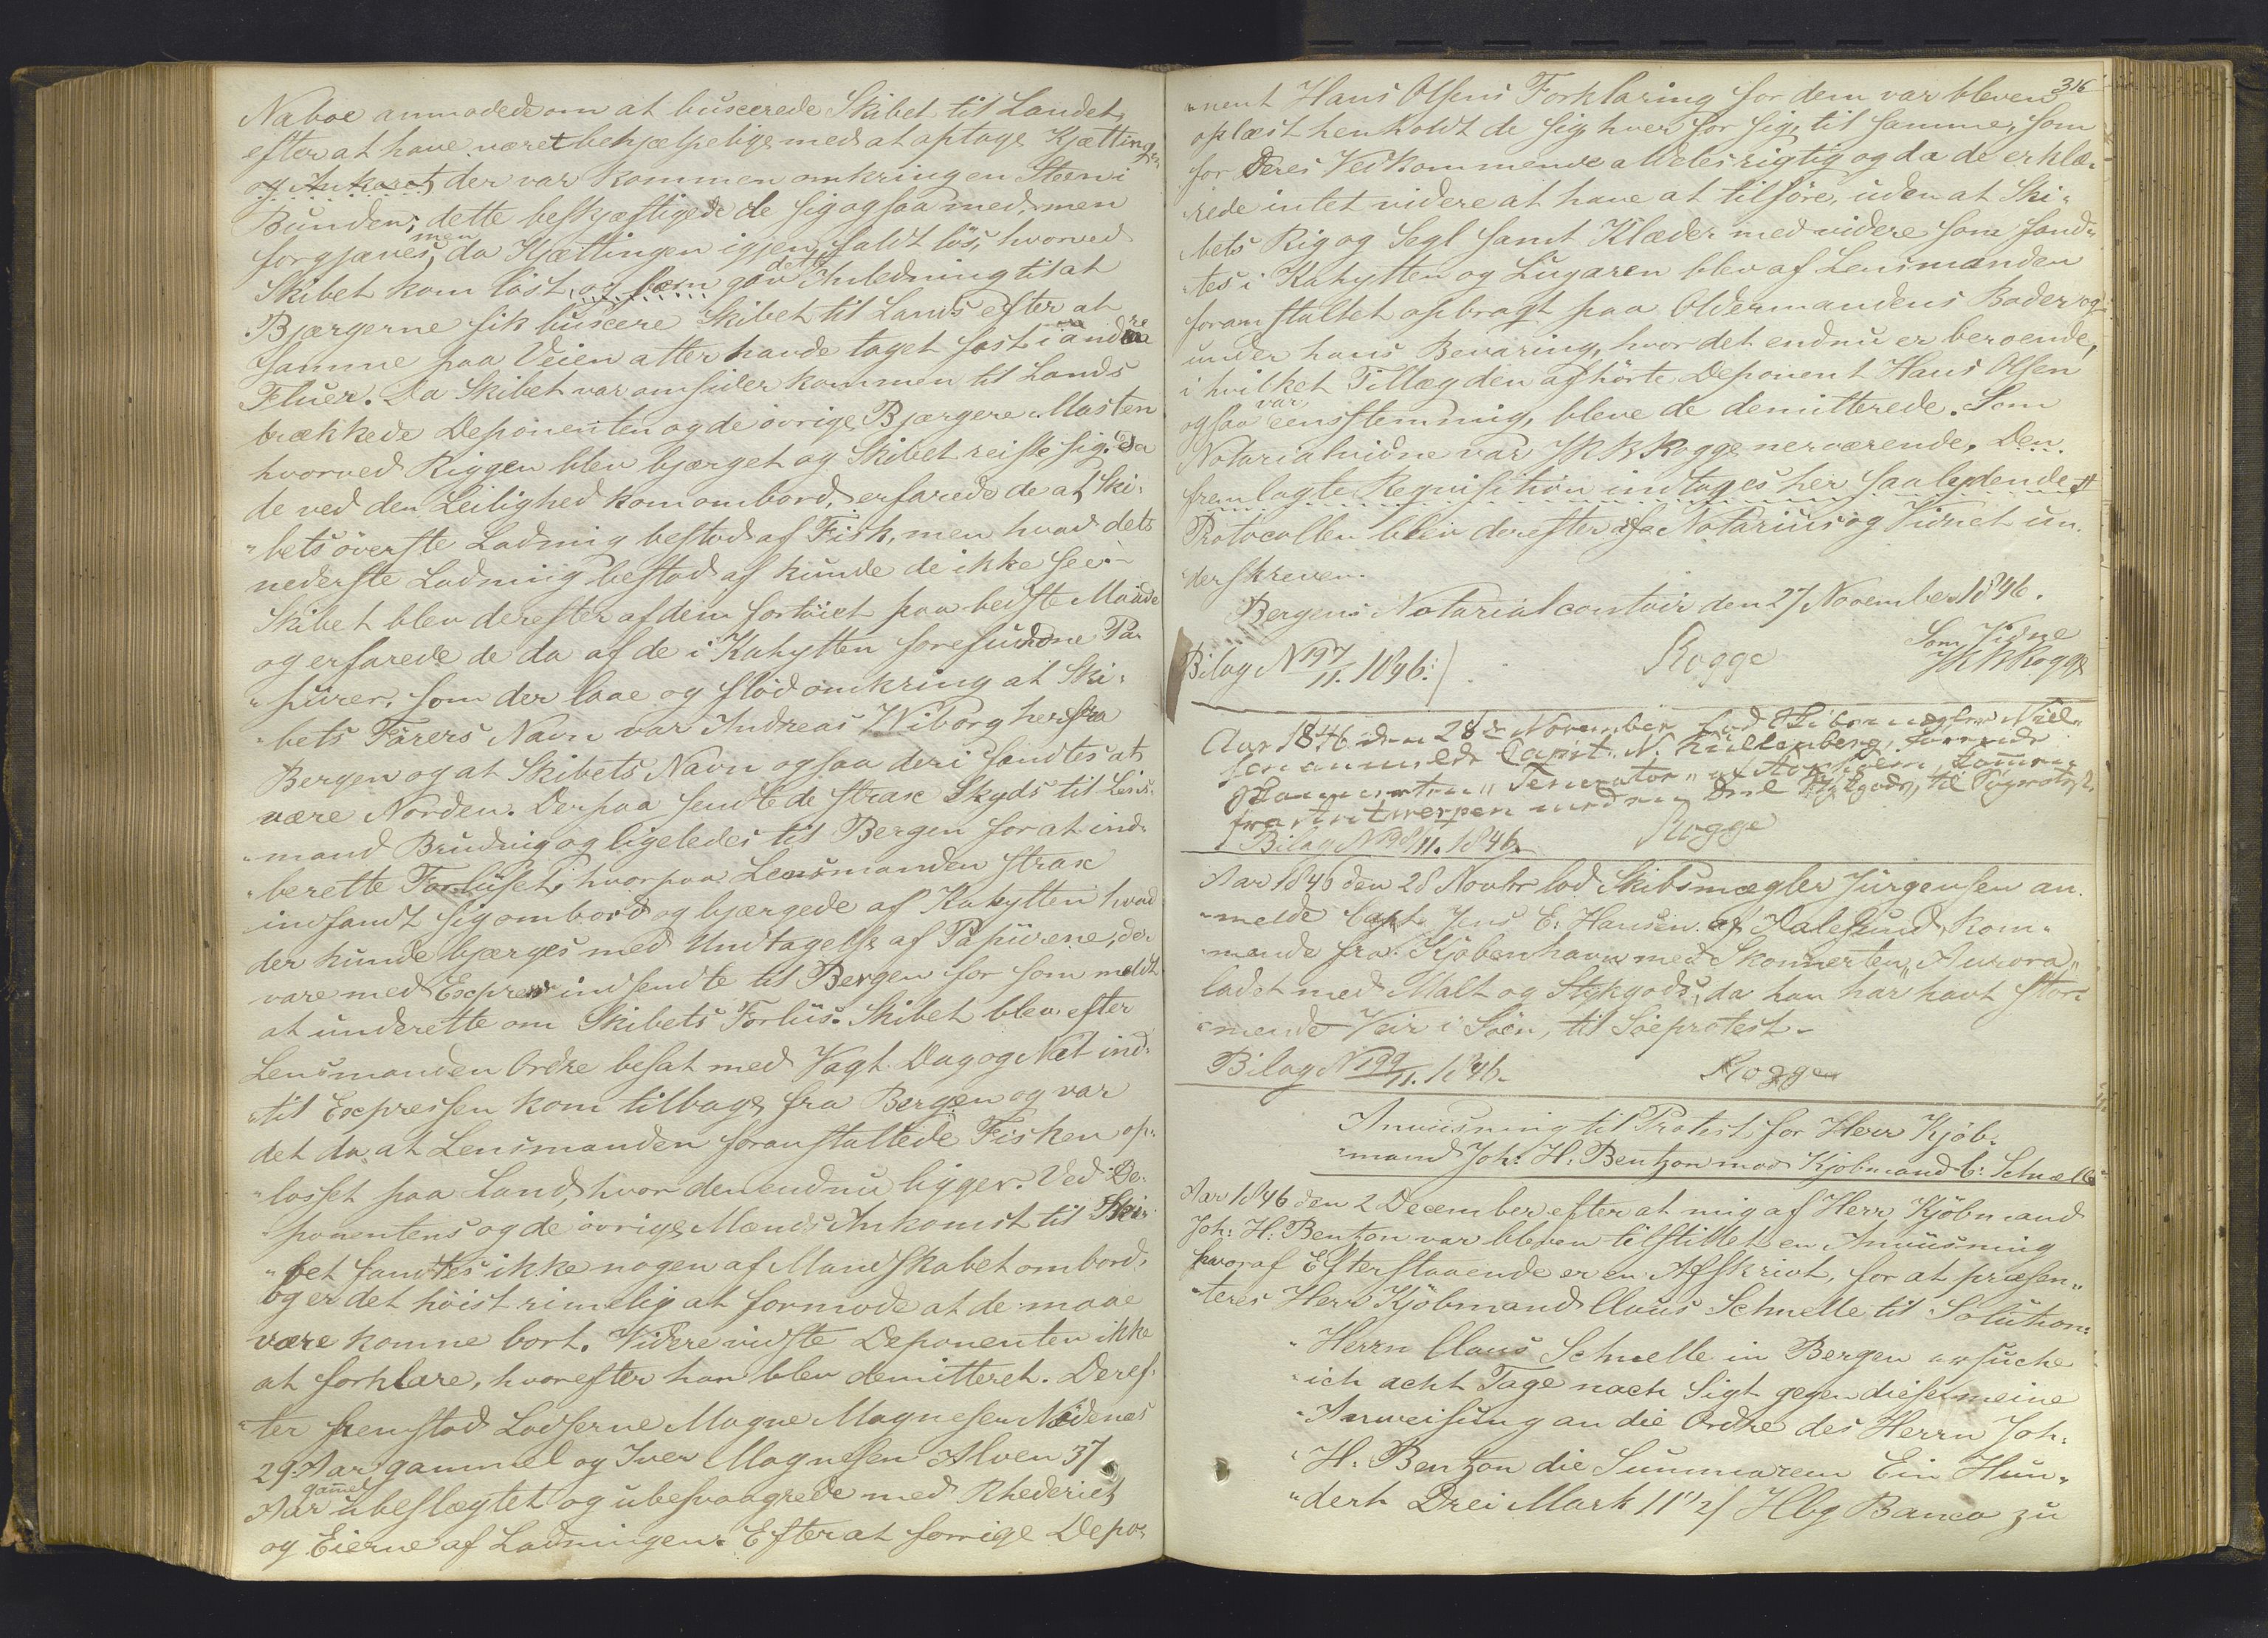 Naboe anmodede om at buxerede Skibet til Landet,
efter at have været behjælpelige med at optage Kjættingen
og Ankeret, der var kommen omkring en Steen i
Bunden; dette beskjæftigede de sig ogsaa med, men
forgjæves, men da Kjættingen igjen faldt lös, hvorved
Skibet kom löst, og som gav dette Anledning til at
Bjærgerne fik buxere Skibet til Lands efter at
samme paa Veien atter havde taget fast i andre
Fluer. Da Skibet var omsider kommen til Lands
brækkede Deponenten og de övrige Bjærgere Masten
hvorved Riggen blev bjærget og Skibet reiste sig. Da
de ved den Leilighed kom ombord, erfarede de at Ski-
bets överste Ladning bestod af Fisk, men hvad dets
nederste Ladning bestod af kunde de ikke see.
Skibet blev derefter af dem fortöiet paa bedste Maade
og erfarede de da af de i Kahytten forefundne Pa-
pirer, som der laae og flöd omkring at Ski-
bets Förers Navn var Andreas Wiborg herfra
Bergen og at Skibets Navn ogsaa deri fandtes at
være Norden. Derpaa sendte de strax Skyds til Lens-
mand Brudvig og ligeledes til Bergen for at ind-
berette Forliiset, hvorpaa Lensmanden strax
indfandt sig ombord og bjærgede af Kahytten hvad
der kunde bjærges med Undtagelse af Papirerne, der
vare med Expres indsendte til Bergen for som meldt
at underette om Skibets Forliis. Skibet blev efter
Lensmanden Ordre besat med Vagt Dag og Nat ind-
til Expressen kom tilbage fra Bergen og var
det da, at Lensmanden foranstaltede Fisken op-
losset paa Land, hvor den endnu ligger. Ved De-
ponentens og de övrige Mænds Ankomst til Ski-
bet fandtes ikke nogen af Mandskabet ombord,
og er det höist rimelig at formode at de maae
være komne bort. Videre vidste Deponenten ikke
at forklare, hvorefter han blev demitteret. Deref-
ter fremstod Lodserne Magne Magnesen Nödenæs
29 Aar gammel og Iver Magnesen Alven 37
Aar gamel ubeslægtet og ubesvaagrede med Rhederiet
og Eierne af Ladningen. Efter at forrige Depo-
316
nent Hans Olsens Forklaring for dem var bleven
oplæst henholdt de sig, hver for sig, til samme, som
for Deres Vedkommende aldeles rigtig og da de erklæ-
rede intet videre at have at tilföre, uden at Ski-
bets Rig og Segl samt Klæder med videre som fand-
tes i Kahytten og Lugaren blev af Lensmanden
foranstaltet opbragt paa Oldermandens Boder og
under hans Bevaring, hvor det endnu er beroende,
i hvilket Tillæg den afhörte Deponent Hans Olsen
ogsaa var eenstemmig, bleve de demitterede. Som
Notarialvidne var JKB Rogge nerværende. Den
fremlagte Requisition indtages her saalydende
Protocollen blev derefter af Notarius og Vidnet un-
derskreven.
Bergens Notarialcontoir den 27 November 1846.
Bilag N 197/11. 1846. Rogge Som Vidne
JKB Rogge
Aar 1846 den 28de November lod Skibsmægler Niel-
sen anmelde Capit. N. Kullenberg, förende
Skonnerten "Temerator" af Stockholm, kommen
fra Antwerpen med en Deel Stykgods, til Söprotest.
Bilag N 198/11. 1846. Rogge
Aar 1846 den 28 Novbr lod Skibsmægler Jürgensen an-
melde Capt. Jens E. Hansen af Aalesund, kom-
mende fra Kjöbenhavn med Skonnerten "Aurora"
ladet med Malt og Stykgods, da han har havt stor-
mende Veir i Söen, til Söeprotest.
Bilag N 199/11. 1846. Rogge
Anviisning til Protest for Herr Kjöb-
mand Joh: H: Bentzon mod Kjöbmand C: Schnelle
Aar 1846 den 2 December efter at mig af Herr Kjöbmand
Joh: H: Bentzon var bleven tilstillet en Anviisning
hvoraf Efterstaaende er en Afskrivt, for at præsen-
teres Herr Kjöbmand Claus Schnelle til Solution:
Herrn Claus Schnelle in Bergen ersuche
ich acht Tage nach Sigt gegen diese meine
Anweisung an die Ordre des Herrn Joh:
H. Bentzon die Summa von Ein Hun-
dert Drei Mark 11 1/2 / Hbg Banco zu